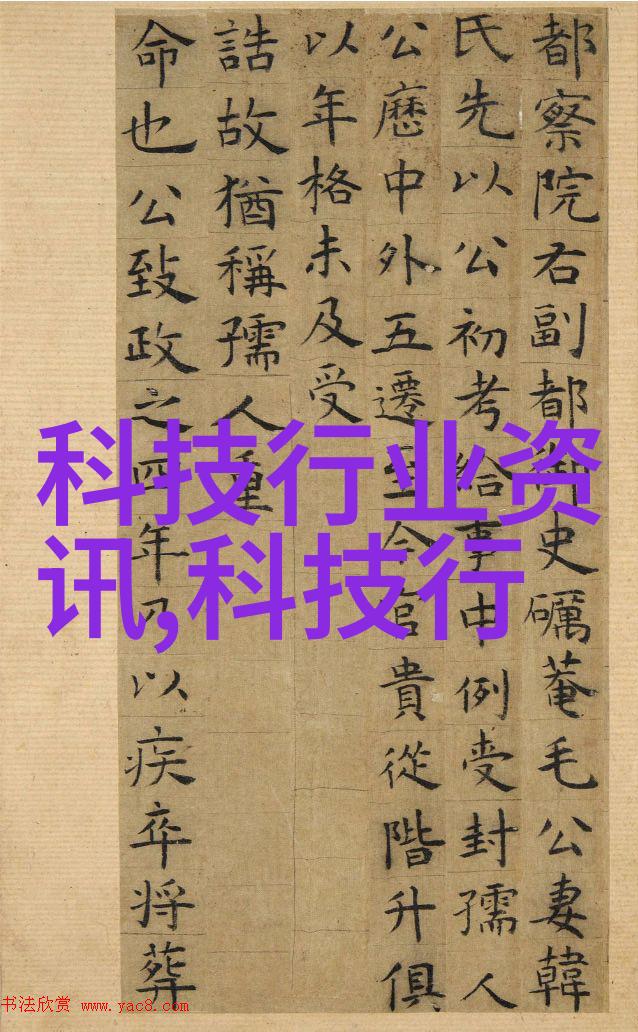 都察院右副都御史礪菴毛公妻韓
氏先以公初考給事中例受封孺人
公歷中外五遷至今官貴從階升俱
以年格未及受
誥故猶稱孺人重
命也公致政之四年乃以疾卒將葬
科技行业资
讯,科技行
书法欣赏 www.yac8.com